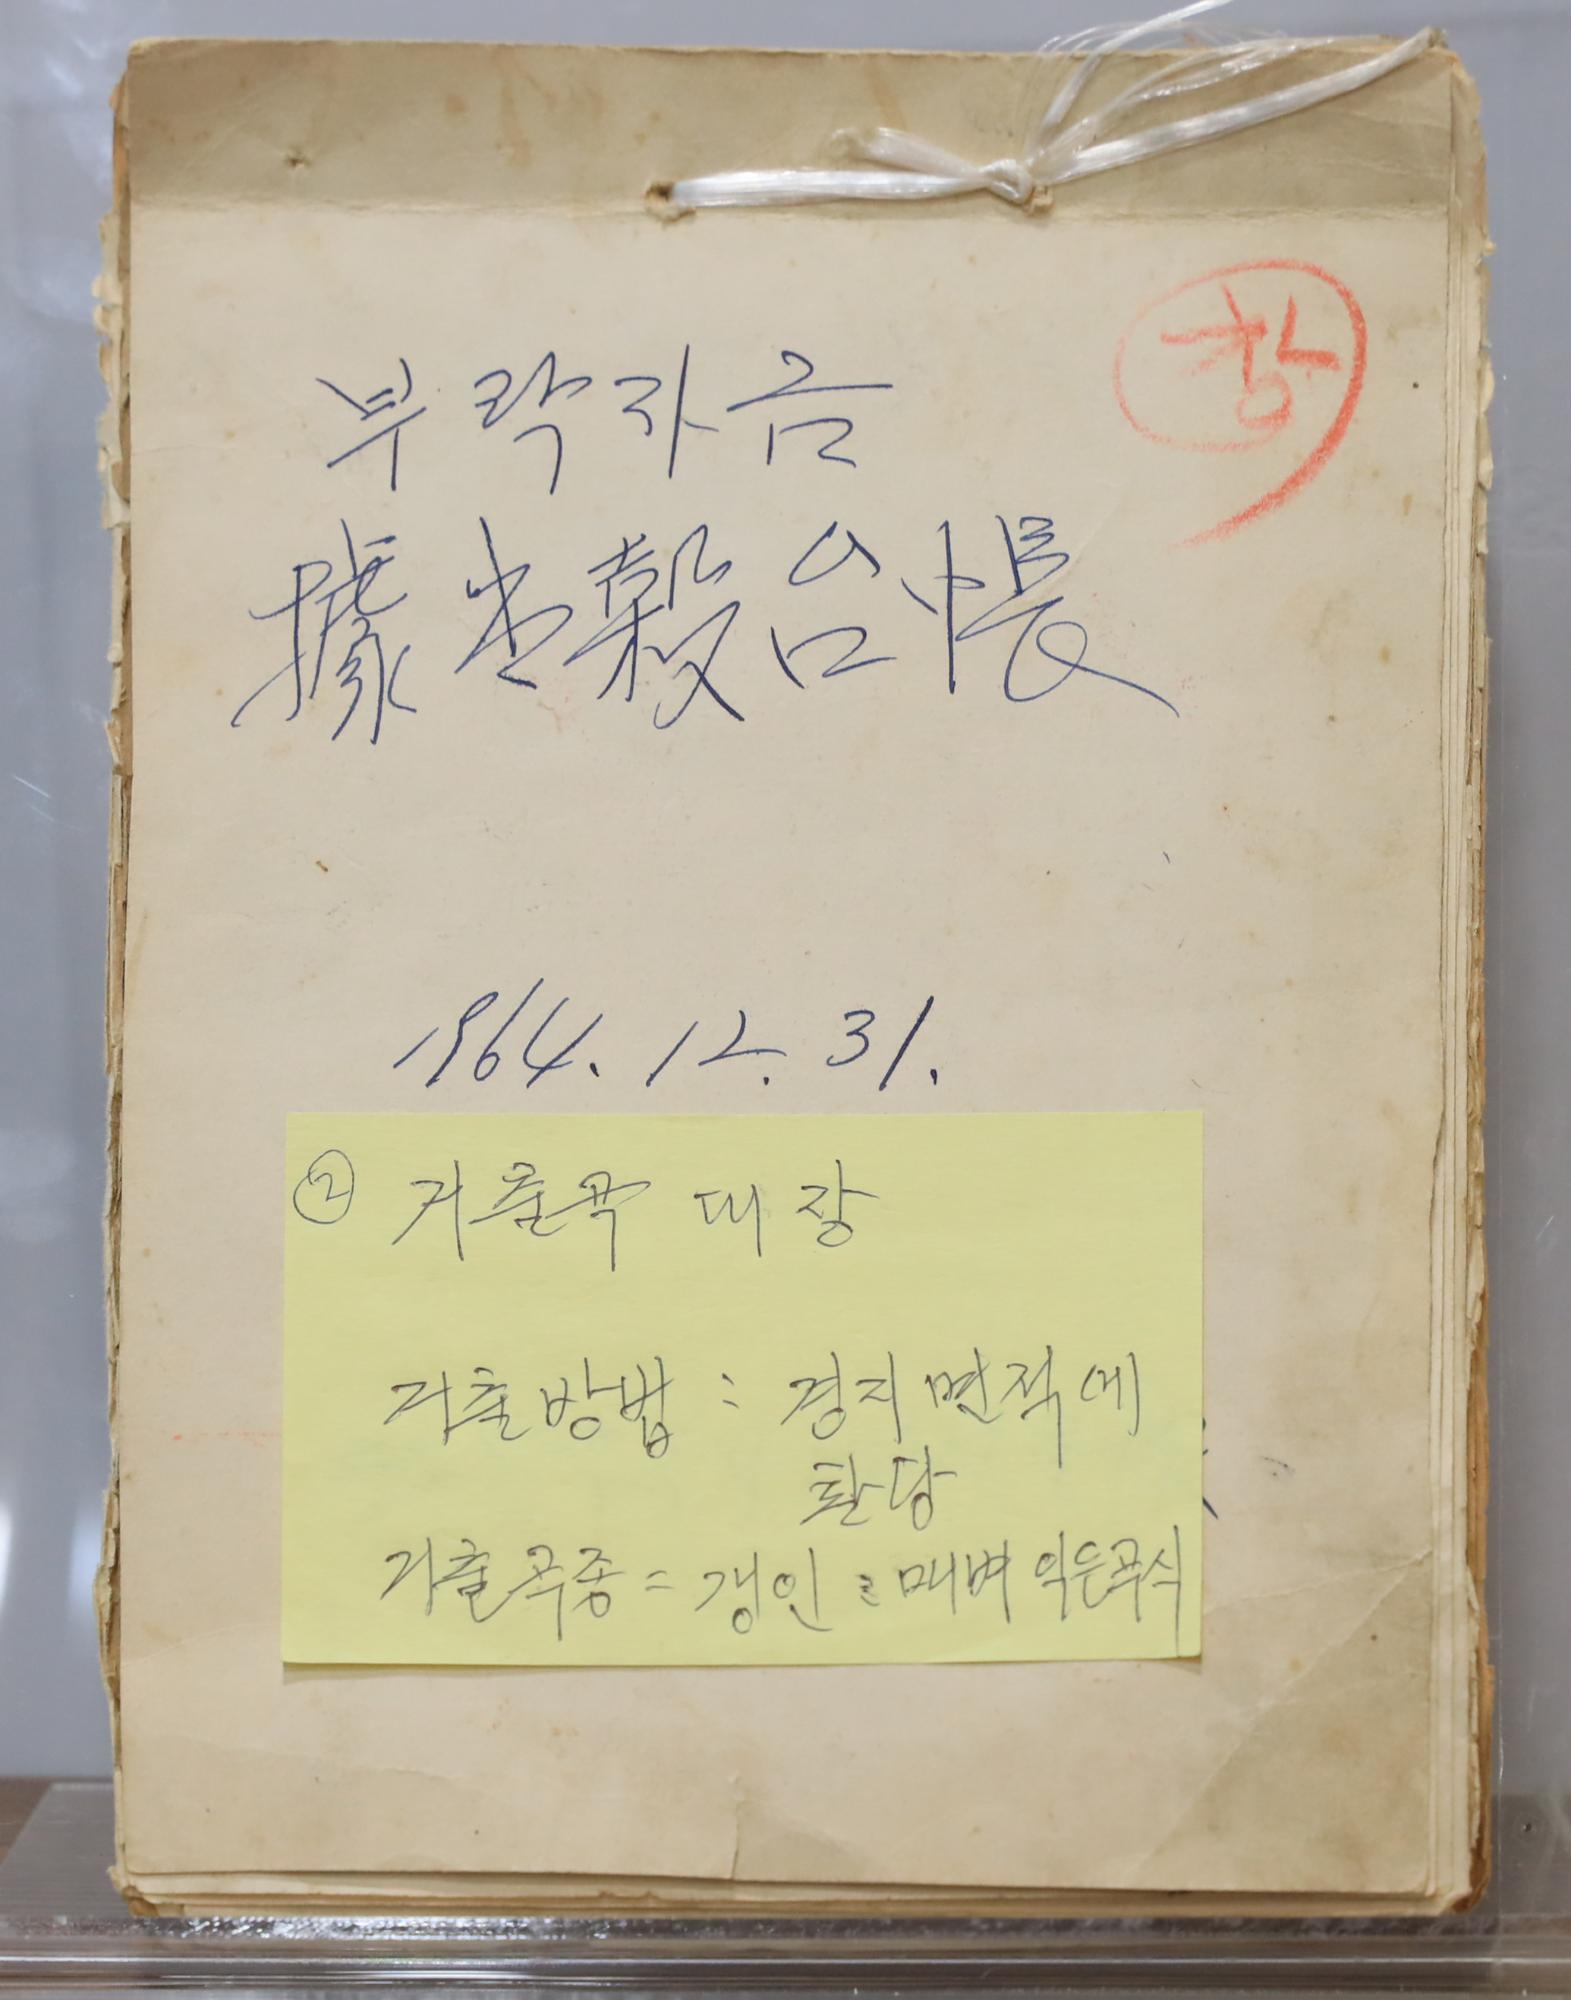 부락자금
據出穀台帳
1964. 12. 31.
② 거출곡 대장
거출방법 : 경지면적에
할당
거출곡종 = 갱인 : 매벼 익은곡식